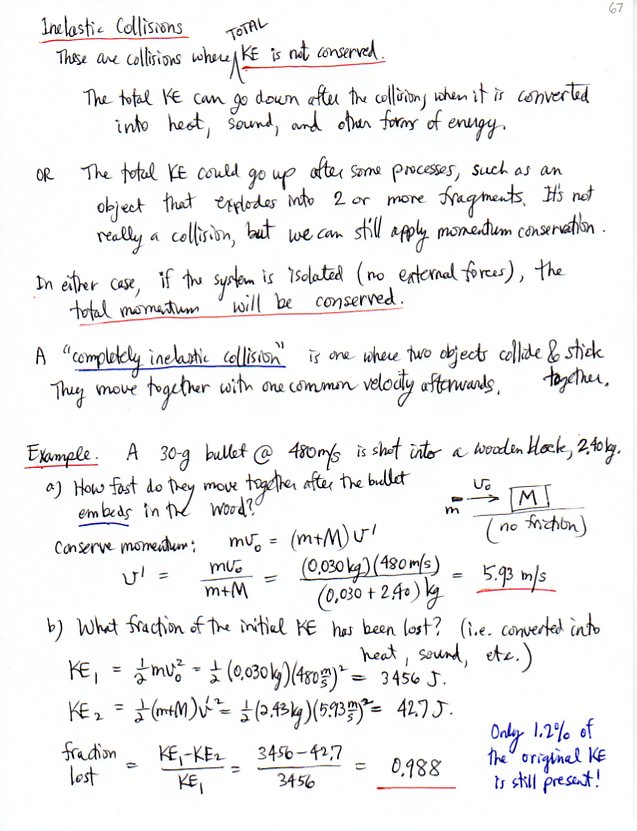 67
Inelastic Collisions
These are collisions where TOTAL KE is not conserved.
The total KE can go down after the collision, when it is converted
into heat, sound, and other forms of energy.
OR The total KE could go up after some processes, such as an
object that explodes into 2 or more fragments. It's not
really a collision, but we can still apply momentum conservation.
In either case, if the system is isolated (no external forces), the
total momentum will be conserved.
A "completely inelastic collision" is one where two objects collide & stick
together.
They move together with one common velocity afterwards.
Example. A 30-g bullet @ 480 m/s is shot into a wooden block, 2.40 kg.
a) How fast do they move together after the bullet
embeds in the wood?
m v₀ M
(no friction)
Conserve momentum: mv₀ = (m+M) v'
v' = mv₀ / m+M = (0.030 kg)(480 m/s) / (0.030 + 2.40) kg = 5.93 m/s
b) What fraction of the initial KE has been lost? (i.e. converted into
heat, sound, etc.)
KE₁ = ½ mv₀² = ½ (0.030 kg)(480 m/s)² = 3456 J.
KE₂ = ½ (m+M) v'² = ½ (2.43 kg)(5.93 m/s)² = 42.7 J.
fraction lost = KE₁-KE₂ / KE₁ = 3456-42.7 / 3456 = 0.988
Only 1.2% of
the original KE
is still present!